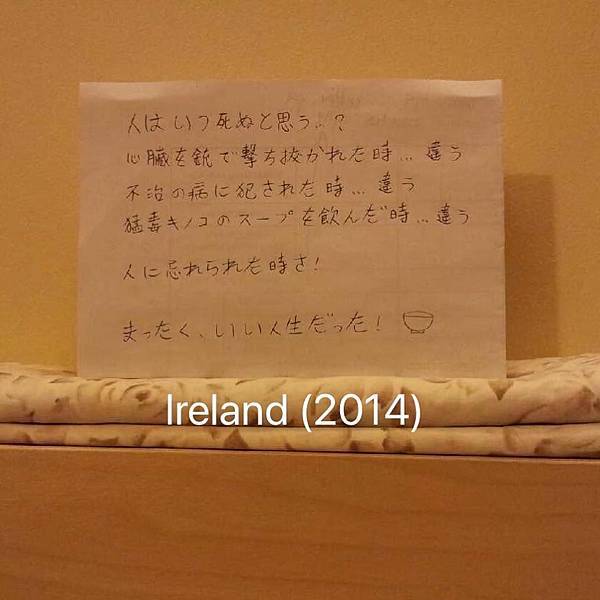 人はいつ死ぬと思う…？
心臓を銃で撃ち抜かれた時…違う
不治の病に犯された時…違う
猛毒キノコのスープを飲んだ時…違う
人に忘れられた時さ！
まったく、いい人生だった！
Ireland (2014)